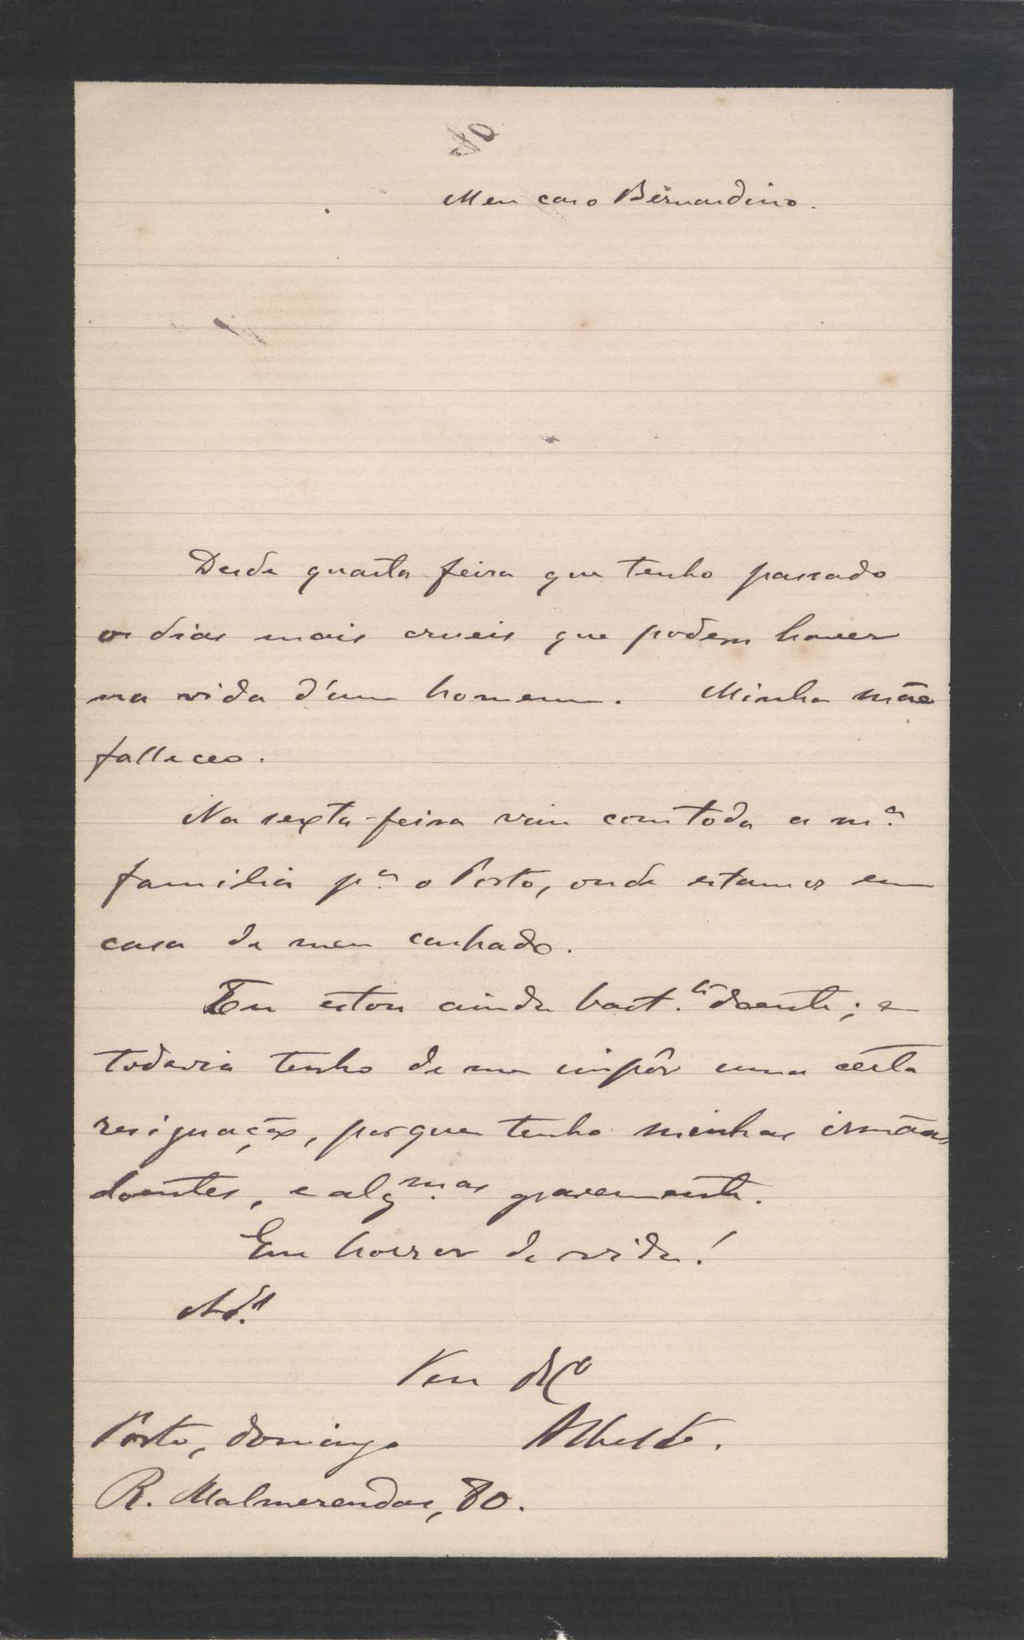 80
Meu caro Bernardino.
Desde quarta feira que tenho passado
os dias mais crueis que podem haver
na vida d'um homem. Minha mãe
falleceo.
Na sexta-feira vim com toda a m.ª
familia p.ª o Porto, onde estamos em
casa de meu cunhado.
Eu estou ainda bast.te doente; e
todavia tenho de me impôr uma certa
resignação, porque tenho minhas irmãas
doentes, e alg.mas gravemente.
Um horror de vida!
Ad.s
Porto, domingo Alberto.
R. Malmerendas, 80.